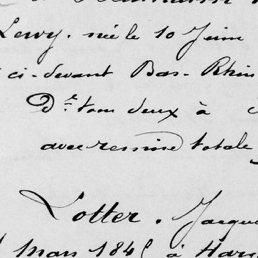 Levy, née le 10 Juin
ci-devant Bas-Rhin
Dt. tous deux à
avec remise totale
Lotter. Jacques
Mars 184 à